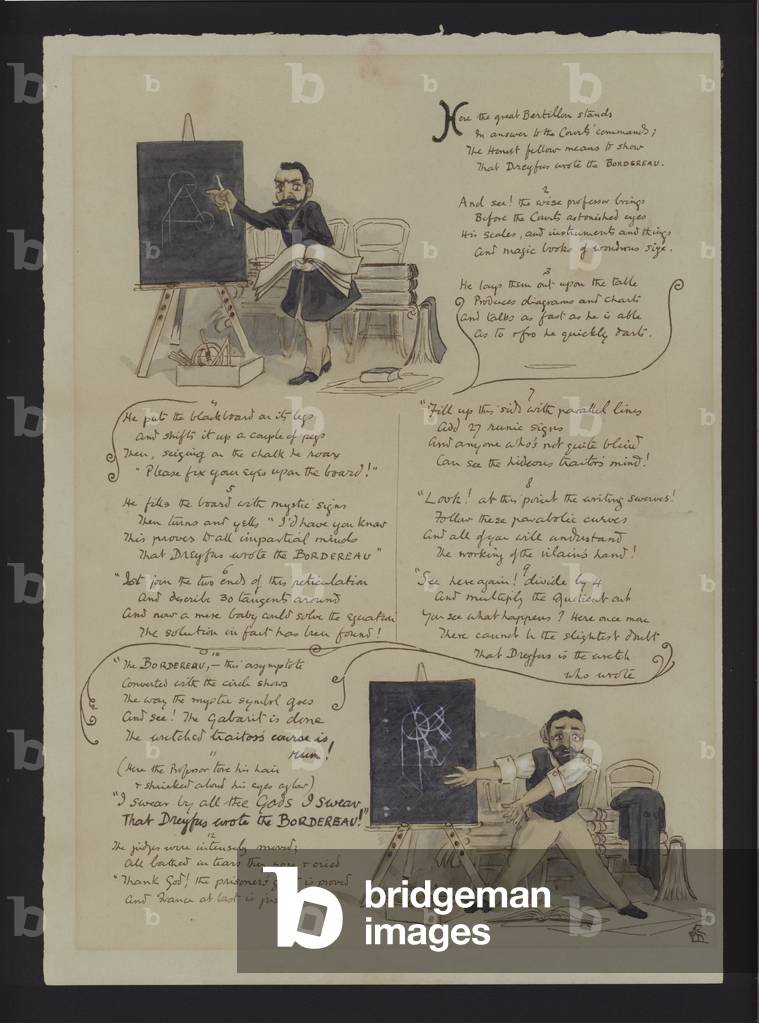 Here the great Bertillon stands
In answer to the Courts' commands;
The Honest fellow means to show
That Dreyfus wrote the BORDEREAU.
2
And see! the wise professor brings
Before the Courts astonished eyes
His scales, and instruments and things
And magic books of wondrous size.
3
He lays them out upon the table
Produces diagrams and charts
And talks as fast as he is able
As to & fro he quickly darts.
4
He puts the blackboard on its legs
And shifts it up a couple of pegs
Then, seizing on the chalk he roars
"Please fix your eyes upon the board!"
5
He fills the board with mystic signs
Then turns and yells "I'd have you know
This proves to all impartial minds
That Dreyfus wrote the BORDEREAU"
6
"Just join the two ends of this reticulation
And describe 30 tangents around
And now a mere baby could solve the equation
The solution in fact has been found!
7
"Fill up this side with parallel lines
Add 27 runic signs
And anyone who's not quite blind
Can see the hideous traitor's mind!
8
"Look! at this point the writing swerves!
Follow these parabolic curves
And all of you will understand
The working of the vilains hand!
9
"See here again! divide by 4
And multiply the Quotient out
You see what happens? Here once more
There cannot be the slightest doubt
That Dreyfus is the wretch
who wrote
10
"The BORDEREAU,— this asymptote
Converted with the circle shows
The way the mystic symbol goes
And see! The Gabarit is done
The wretched traitor's course is
run!
11
(Here the Professor tore his hair
& shrieked aloud his eyes aglow)
"I swear by all the Gods I swear
That Dreyfus wrote the BORDEREAU!"
12
The judges were intensely moved;
All bathed in tears they rose & cried
"Thank God! the prisoners guilt is proved
And France at last is
bridgeman
images